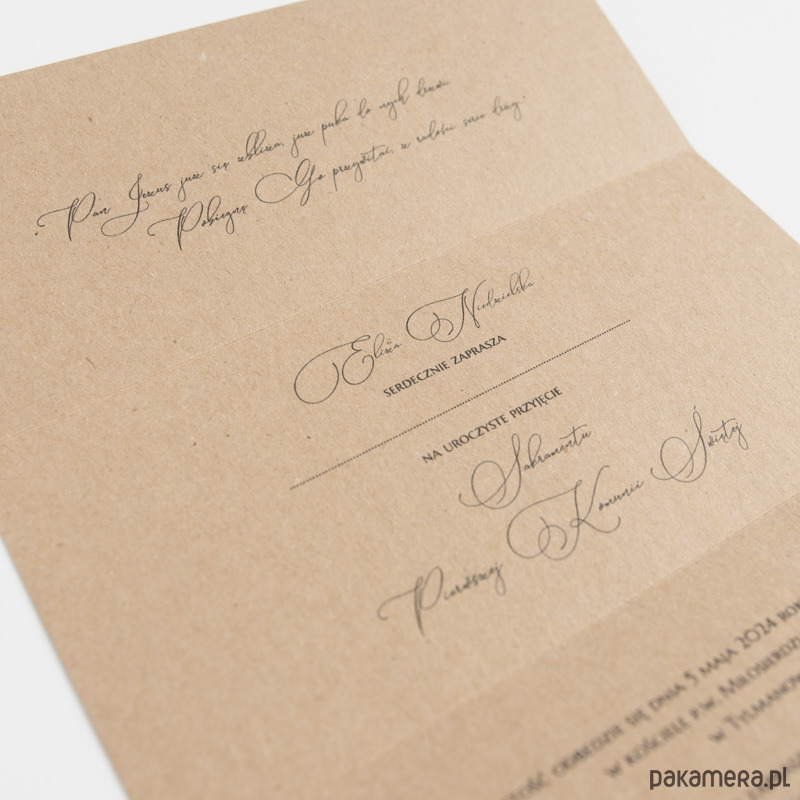 „Pan Jezus już się zbliża, już puka do mych drzwi
Pobiegnę Go przywitać, z radości serce drży”
Eliza Niedzielska
SERDECZNIE ZAPRASZA
NA UROCZYSTE PRZYJĘCIE
Sakramentu
Pierwszej Komunii Świętej
ODBĘDZIE SIĘ DNIA 5 MAJA 2024
W KOŚCIELE P.W. MIŁOSIERDZ
W TYLMANOW
pakamera.pl